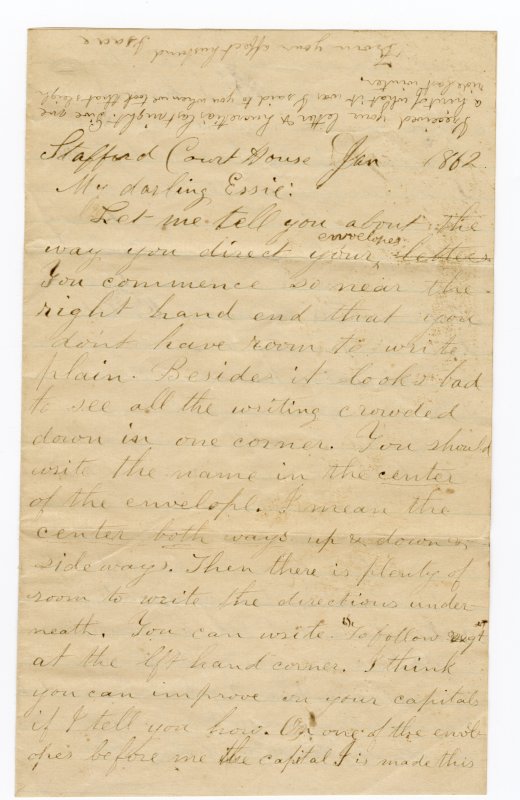 Stafford Court House Jan 1862
My darling Essie:
Let me tell you about the
way you direct your envelopes letters.
You commence so near the
right hand end that you
dont have room to write
plain. Beside it looks bad
to see all the writing crowded
down in one corner. You should
write the name in the center
of the envelope. I mean the
center both ways up & down &
sideways. Then there is plenty of
room to write the directions under-
neath. You can write "To follow regt"
at the left hand corner. I think
you can improve on your capitals
if I tell you how. On one of the envel
opes before me the capital I is made this
I received your letter & last night. Give me
a hint of what it was I said to you when we took that sleigh
ride last winter.
From your affect husband Isaac